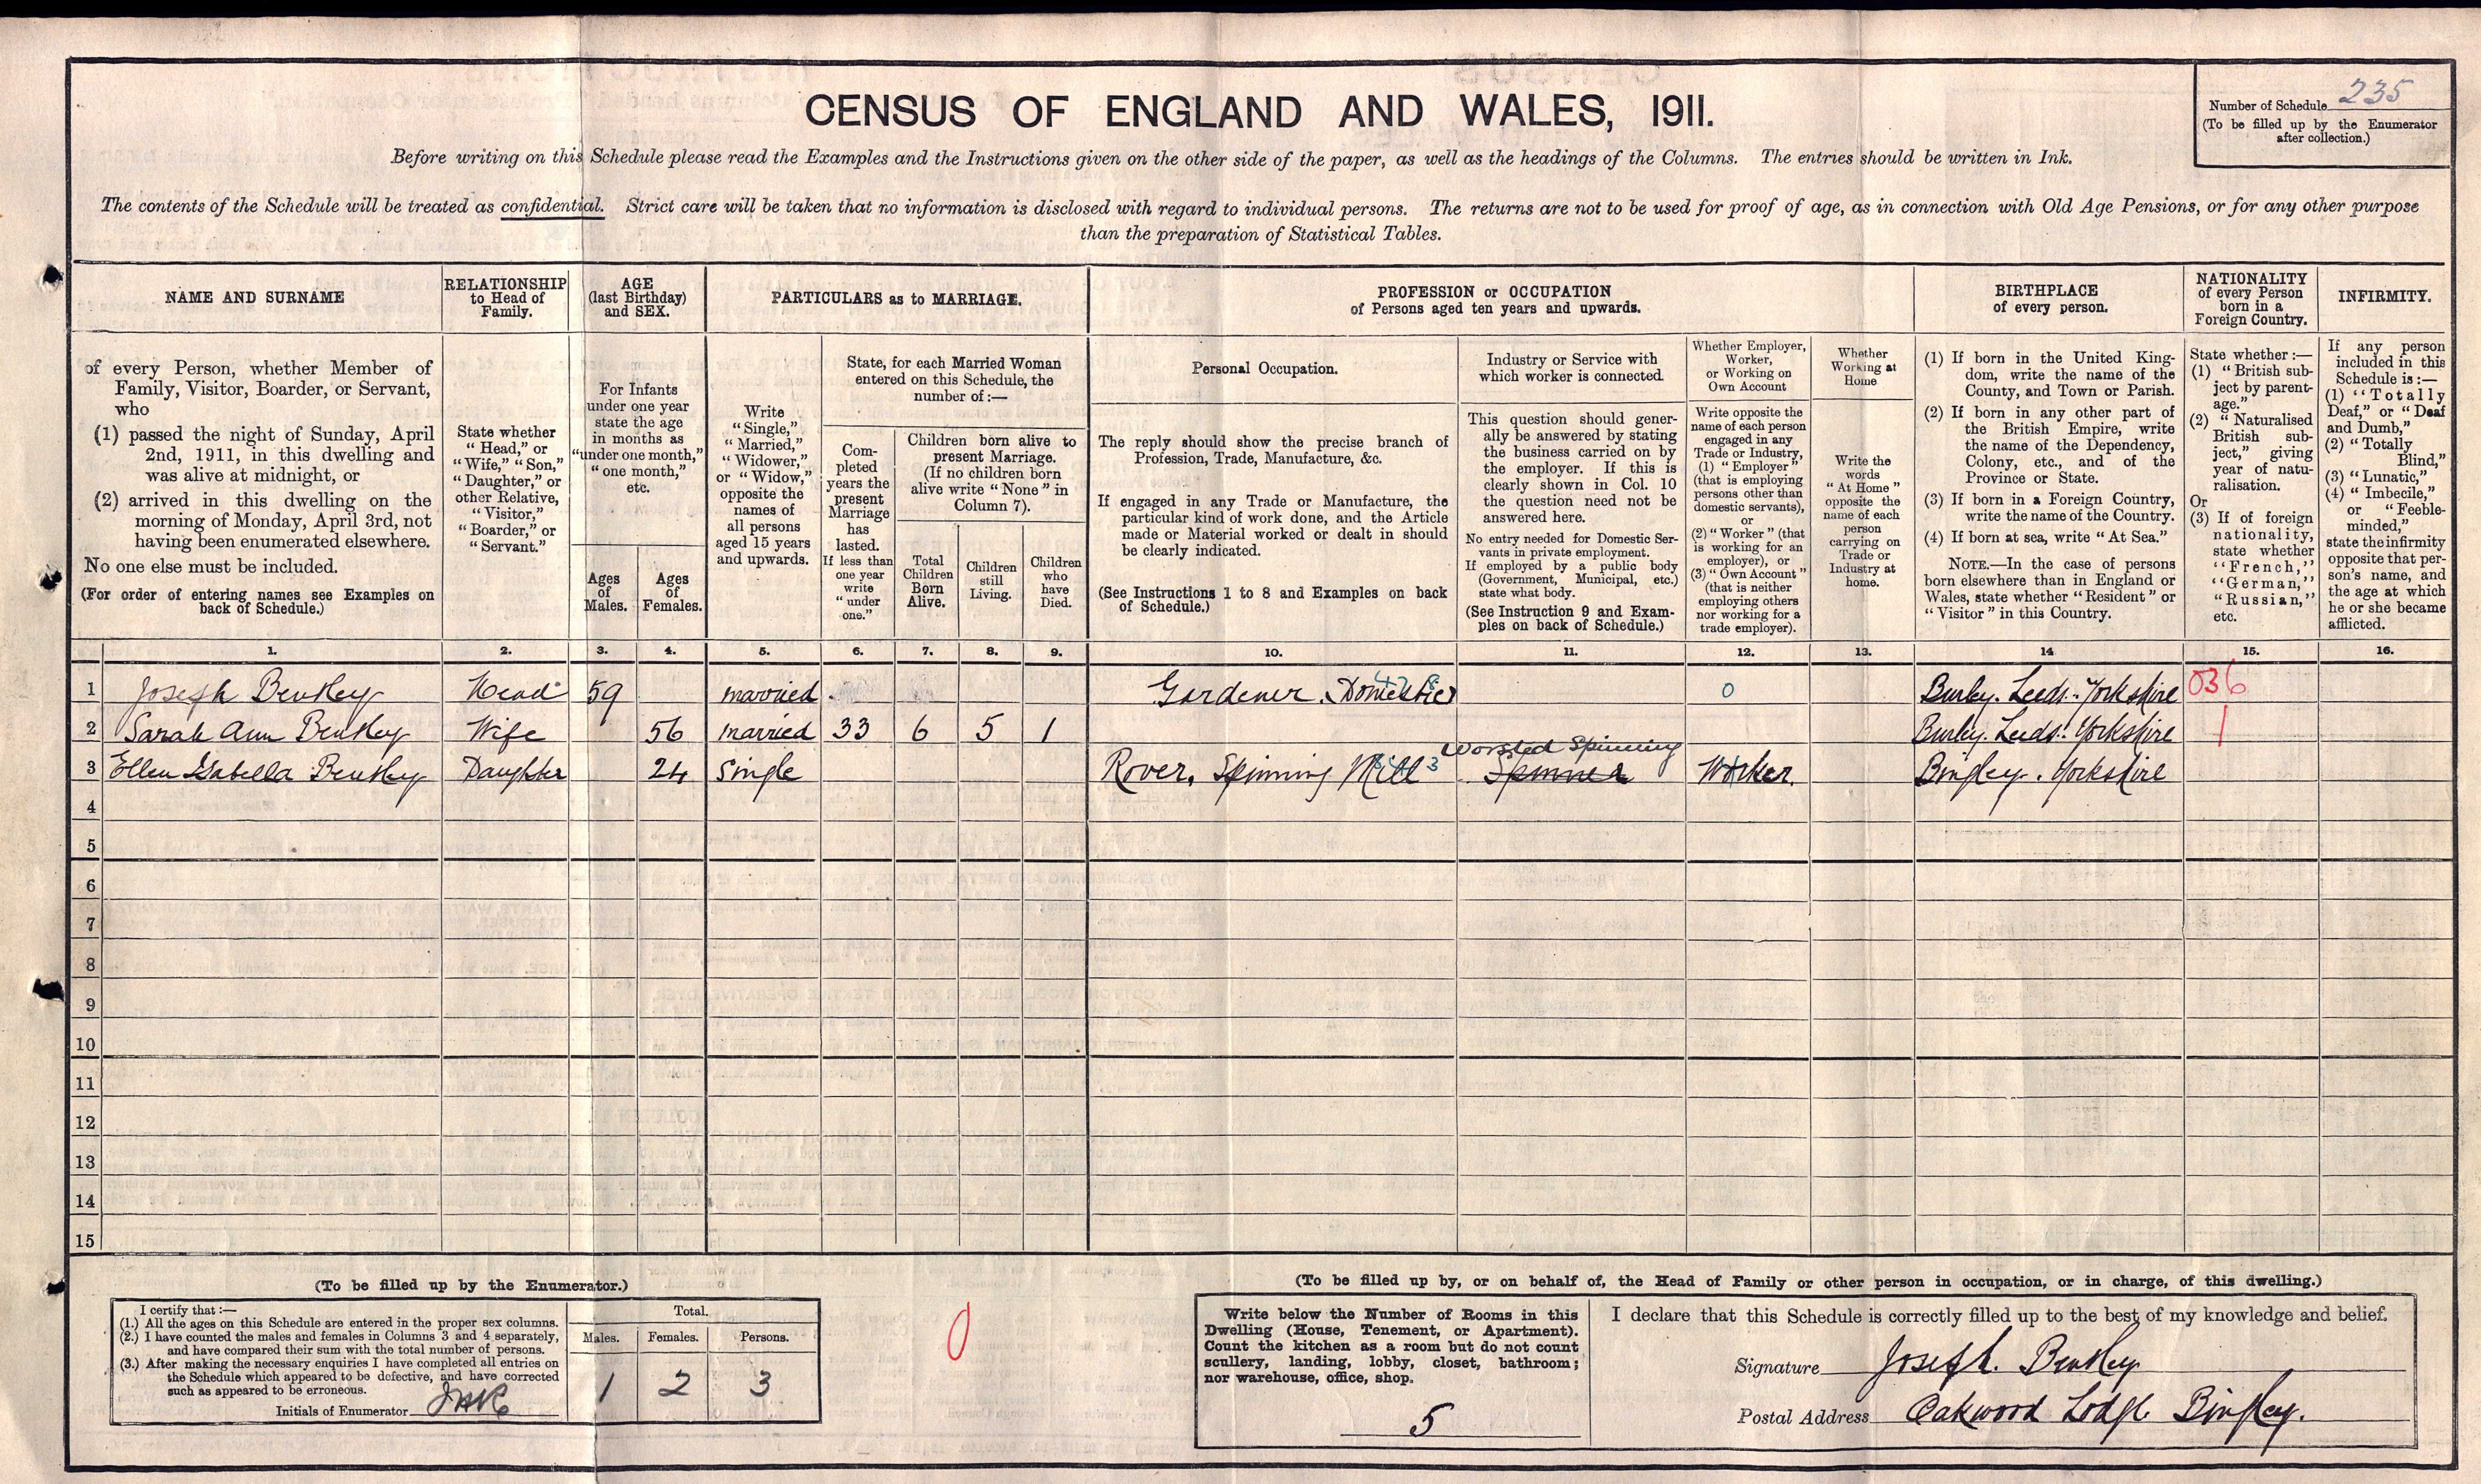 CENSUS OF ENGLAND AND WALES, 1911.
Number of Schedule 235
(To be filled up by the Enumerator
after collection.)
Before writing on this Schedule please read the Examples and the Instructions given on the other side of the paper, as well as the headings of the Columns. The entries should be written in Ink.
The contents of the Schedule will be treated as confidential. Strict care will be taken that no information is disclosed with regard to individual persons. The returns are not to be used for proof of age, as in connection with Old Age Pensions, or for any other purpose
than the preparation of Statistical Tables.
NAME AND SURNAME
RELATIONSHIP
to Head of
Family.
AGE
(last Birthday)
and SEX.
PARTICULARS as to MARRIAGE.
PROFESSION or OCCUPATION
of Persons aged ten years and upwards.
BIRTHPLACE
of every person.
NATIONALITY
of every Person
born in a
Foreign Country.
INFIRMITY.
of every Person, whether Member of
Family, Visitor, Boarder, or Servant,
who
(1) passed the night of Sunday, April
2nd, 1911, in this dwelling and
was alive at midnight, or
(2) arrived in this dwelling on the
morning of Monday, April 3rd, not
having been enumerated elsewhere.
No one else must be included.
(For order of entering names see Examples on
back of Schedule.)
State whether
"Head," or
"Wife," "Son,"
"Daughter," or
other Relative,
"Visitor,"
"Boarder," or
"Servant."
For Infants
under one year
state the age
in months as
"under one month,"
"one month,"
etc.
Ages
of
Males.
Ages
of
Females.
Write
"Single,"
"Married,"
"Widower,"
or "Widow,"
opposite the
names of
all persons
aged 15 years
and upwards.
State, for each Married Woman
entered on this Schedule, the
number of:—
Com-
pleted
years the
present
Marriage
has
lasted.
If less than
one year
write
"under
one."
Children born alive to
present Marriage.
(If no children born
alive write "None" in
Column 7).
Total
Children
Born
Alive.
Children
still
Living.
Children
who
have
Died.
Personal Occupation.
The reply should show the precise branch of
Profession, Trade, Manufacture, &c.
If engaged in any Trade or Manufacture, the
particular kind of work done, and the Article
made or Material worked or dealt in should
be clearly indicated.
(See Instructions 1 to 8 and Examples on back
of Schedule.)
Industry or Service with
which worker is connected.
This question should gener-
ally be answered by stating
the business carried on by
the employer. If this is
clearly shown in Col. 10
the question need not be
answered here.
No entry needed for Domestic Ser-
vants in private employment.
If employed by a public body
(Government, Municipal, etc.)
state what body.
(See Instruction 9 and Exam-
ples on back of Schedule.)
Whether Employer,
Worker,
or Working on
Own Account
Write opposite the
name of each person
engaged in any
Trade or Industry,
(1) "Employer"
(that is employing
persons other than
domestic servants),
or
(2) "Worker" (that
is working for an
employer), or
(3) "Own Account"
(that is neither
employing others
nor working for a
trade employer).
Whether
Working at
Home
Write the
words
"At Home"
opposite the
name of each
person
carrying on
Trade or
Industry at
home.
(1) If born in the United King-
dom, write the name of the
County, and Town or Parish.
(2) If born in any other part of
the British Empire, write
the name of the Dependency,
Colony, etc., and of the
Province or State.
(3) If born in a Foreign Country,
write the name of the Country.
(4) If born at sea, write "At Sea."
NOTE.—In the case of persons
born elsewhere than in England or
Wales, state whether "Resident" or
"Visitor" in this Country.
State whether:—
(1) "British sub-
ject by parent-
age."
(2) "Naturalised
British sub-
ject," giving
year of natu-
ralisation.
Or
(3) If of foreign
nationality,
state whether
"French,"
"German,"
"Russian,"
etc.
If any person
included in this
Schedule is:—
(1) "Totally
Deaf," or "Deaf
and Dumb,"
(2) "Totally
Blind,"
(3) "Lunatic,"
(4) "Imbecile,"
or "Feeble-
minded,"
state the infirmity
opposite that per-
son's name, and
the age at which
he or she became
afflicted.
1. 2. 3. 4. 5. 6. 7. 8. 9. 10. 11. 12. 13. 14 15. 16.
1 Joseph Bentley Head 59 married Gardener. Domestic 0 Burley. Leeds. Yorkshire 036
2 Sarah Ann Bentley Wife 56 married 33 6 5 1 Burley. Leeds. Yorkshire 1
Worsted Spinning
3 Ellen Isabella Bentley Daughter 24 Single Rover, Spinning Mill 3 Spinner Worker. Bingley. Yorkshire
4
5
6
7
8
9
10
11
12
13
14
15
(To be filled up by the Enumerator.)
I certify that:—
(1.) All the ages on this Schedule are entered in the proper sex columns.
(2.) I have counted the males and females in Columns 3 and 4 separately,
and have compared their sum with the total number of persons.
(3.) After making the necessary enquiries I have completed all entries on
the Schedule which appeared to be defective, and have corrected
such as appeared to be erroneous.
Initials of Enumerator
Total.
Males. Females. Persons.
1 2 3
0
(To be filled up by, or on behalf of, the Head of Family or other person in occupation, or in charge, of this dwelling.)
Write below the Number of Rooms in this
Dwelling (House, Tenement, or Apartment).
Count the kitchen as a room but do not count
scullery, landing, lobby, closet, bathroom;
nor warehouse, office, shop.
5
I declare that this Schedule is correctly filled up to the best of my knowledge and belief.
Signature Joseph. Bentley
Postal Address Oakwood Lodge Bingley.